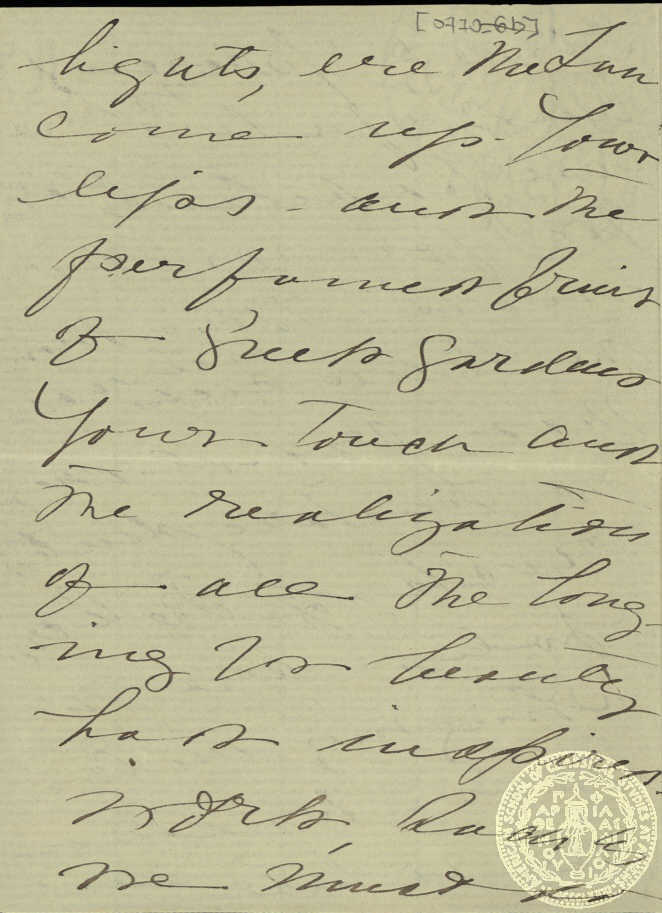 lights, ere the Sun
come up - Your
lips - and the
perfumed fruit
of Greek gardens
Your Touch and
The realization
of all The long-
ing for beauty
has inspired
work,
we must